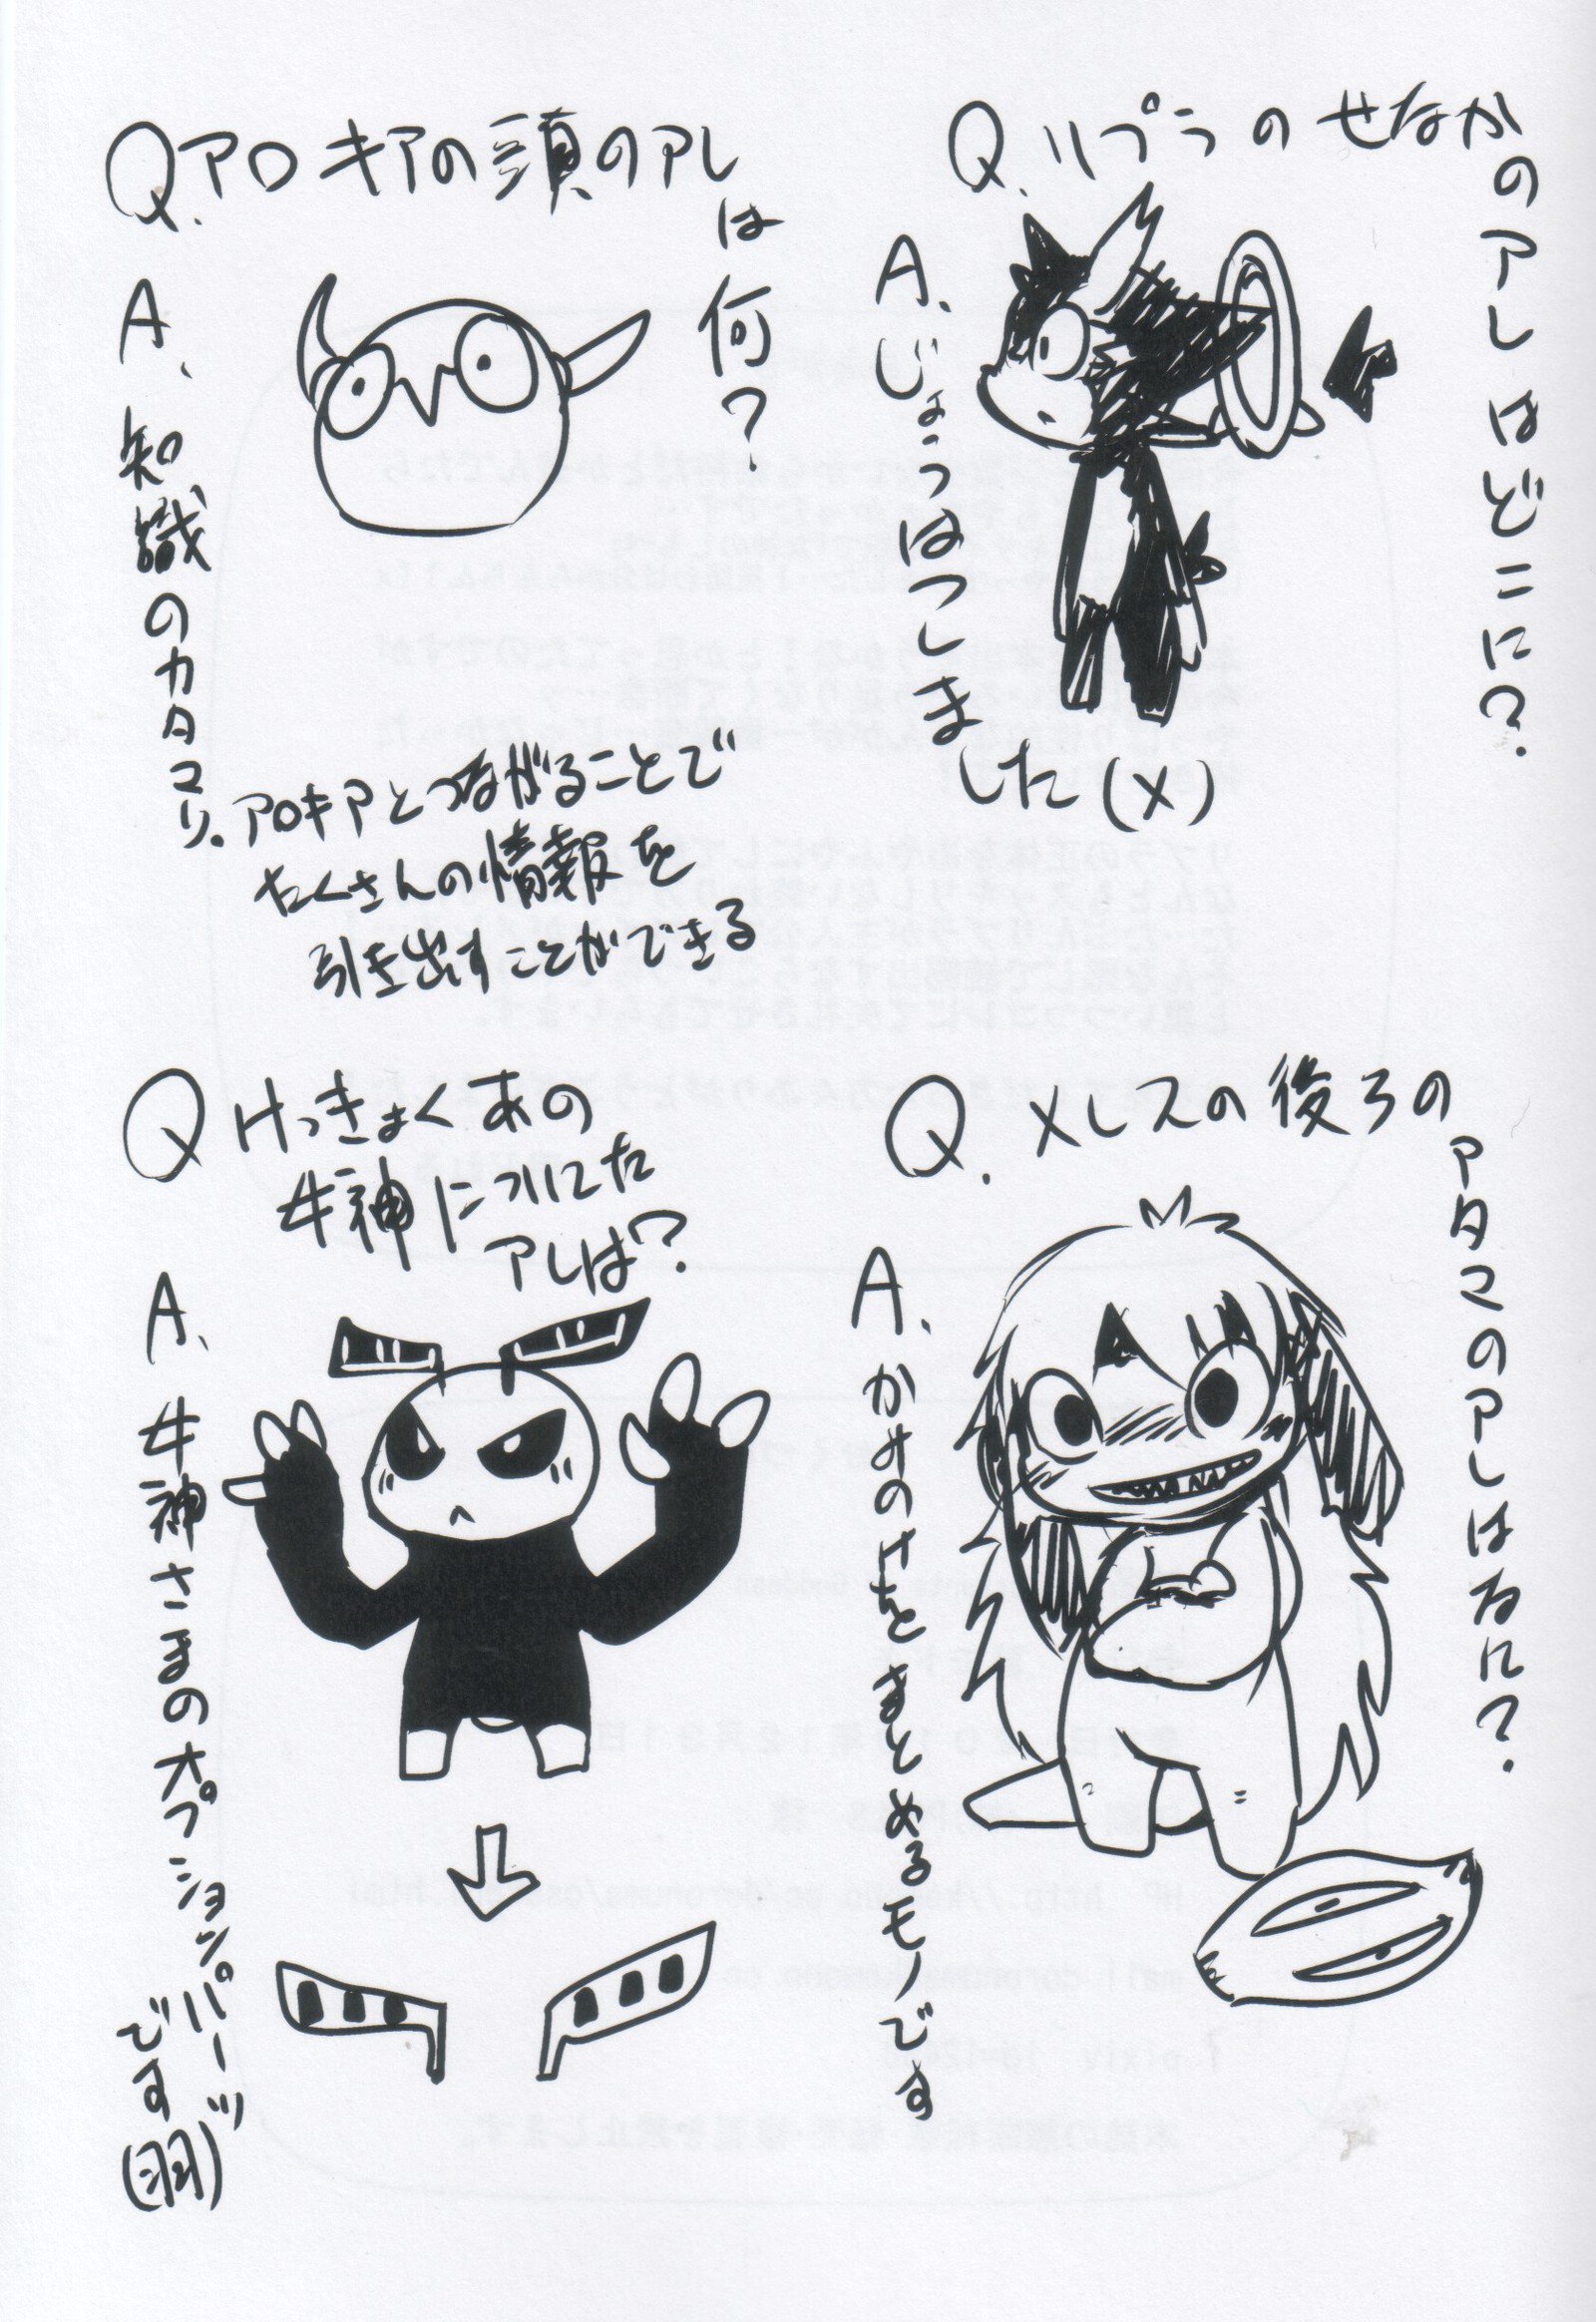 Q.リプラのせなか
のアレはどこに?
A、じょうはつしま
した(X)
Q.アロキアの頭のアレ
は何?
A、知識のカタマリ。
アロキアとつながることで
たくさんの情報を
引き出すことができる
Q.メレスの後ろの
アタマのアレはなに?
A、かみのけをまとめるモノです
Qけっきょくあの
女神についてた
アレは?
A、女神さまのオプションパーツ
です(羽)